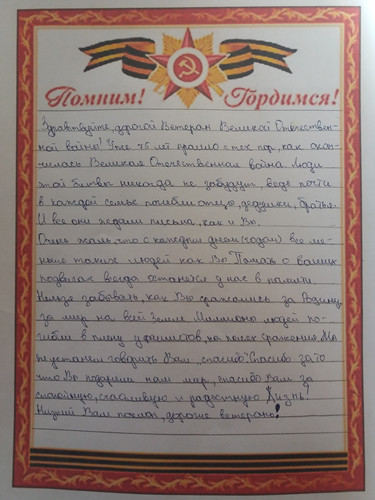 Помним! Гордимся!
Здравствуйте, дорогой Ветеран Великой Отечествен-
ной войны! Уже 75 лет прошло с тех пор, как окон-
чилась Великая Отечественная война. Люди
этой битвы никогда не забудут, ведь почти
в каждой семье погибли отцы, дедушки, братья.
И все они ждали письма, как и Вы.
Очень жаль, что с каждым днем (годом) все ме-
ньше таких людей как Вы. Память о ваших
подвигах всегда останется у нас в памяти.
Нельзя забывать, как Вы сражались за Родину,
за мир на всей Земле. Миллионы людей по-
гибли в плену у фашистов, на полях сражения. Мы
не устанем говорить Вам „спасибо"! Спасибо за то
что Вы подарили нам мир, спасибо Вам за
спокойную, счастливую и радостную Жизнь!
Низкий Вам поклон, дорогие ветераны!